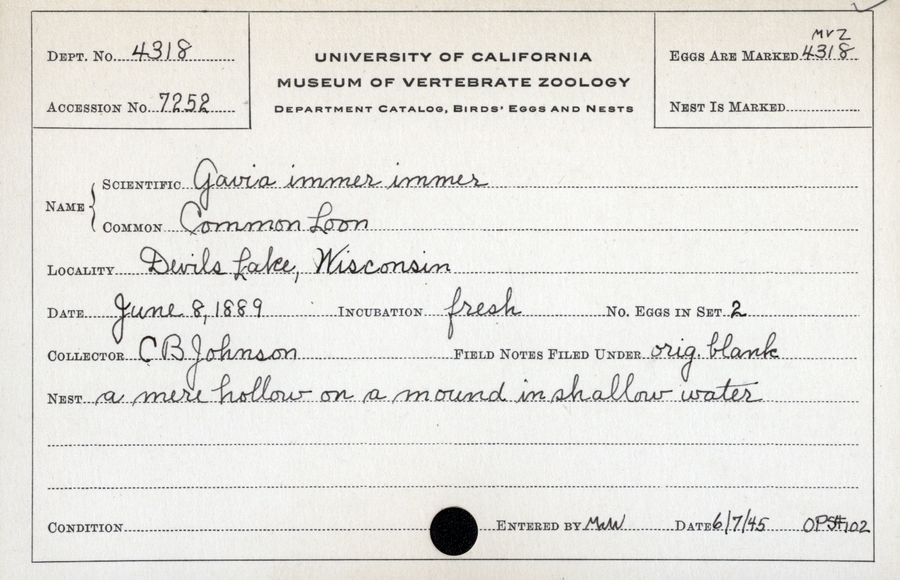 Dept. No. 4318
Accession No. 7252
UNIVERSITY OF CALIFORNIA
MUSEUM OF VERTEBRATE ZOOLOGY
Department Catalog, Birds' Eggs and Nests
MVZ
Eggs Are Marked 4318
Nest Is Marked
Name { Scientific Gavia immer immer
Common Common Loon
Locality Devils Lake, Wisconsin
Date June 8, 1889 Incubation fresh No. Eggs in Set 2
Collector C B Johnson Field Notes Filed Under orig. blank
Nest a mere hollow on a mound in shallow water
Condition Entered by Date 6/7/45 OPS#102